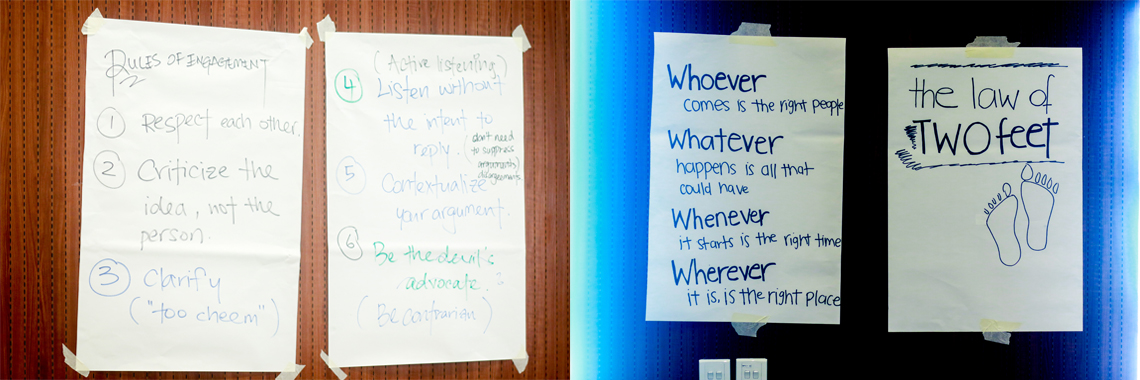 RULES OF ENGAGEMENT
1 Respect each other.
2 Criticize the
idea, not the
person.
3 Clarify
("too cheem")
(Active listening)
4 Listen without
the intent to
reply.
(don't need
to suppress
arguments/
disagreements)
5 Contextualize
your argument.
6 Be the devil's
advocate.
(Be contrarian)
Whoever
comes is the right people
Whatever
happens is all that
could have
Whenever
it starts is the right time
Wherever
it is, is the right place
the law of
TWO feet